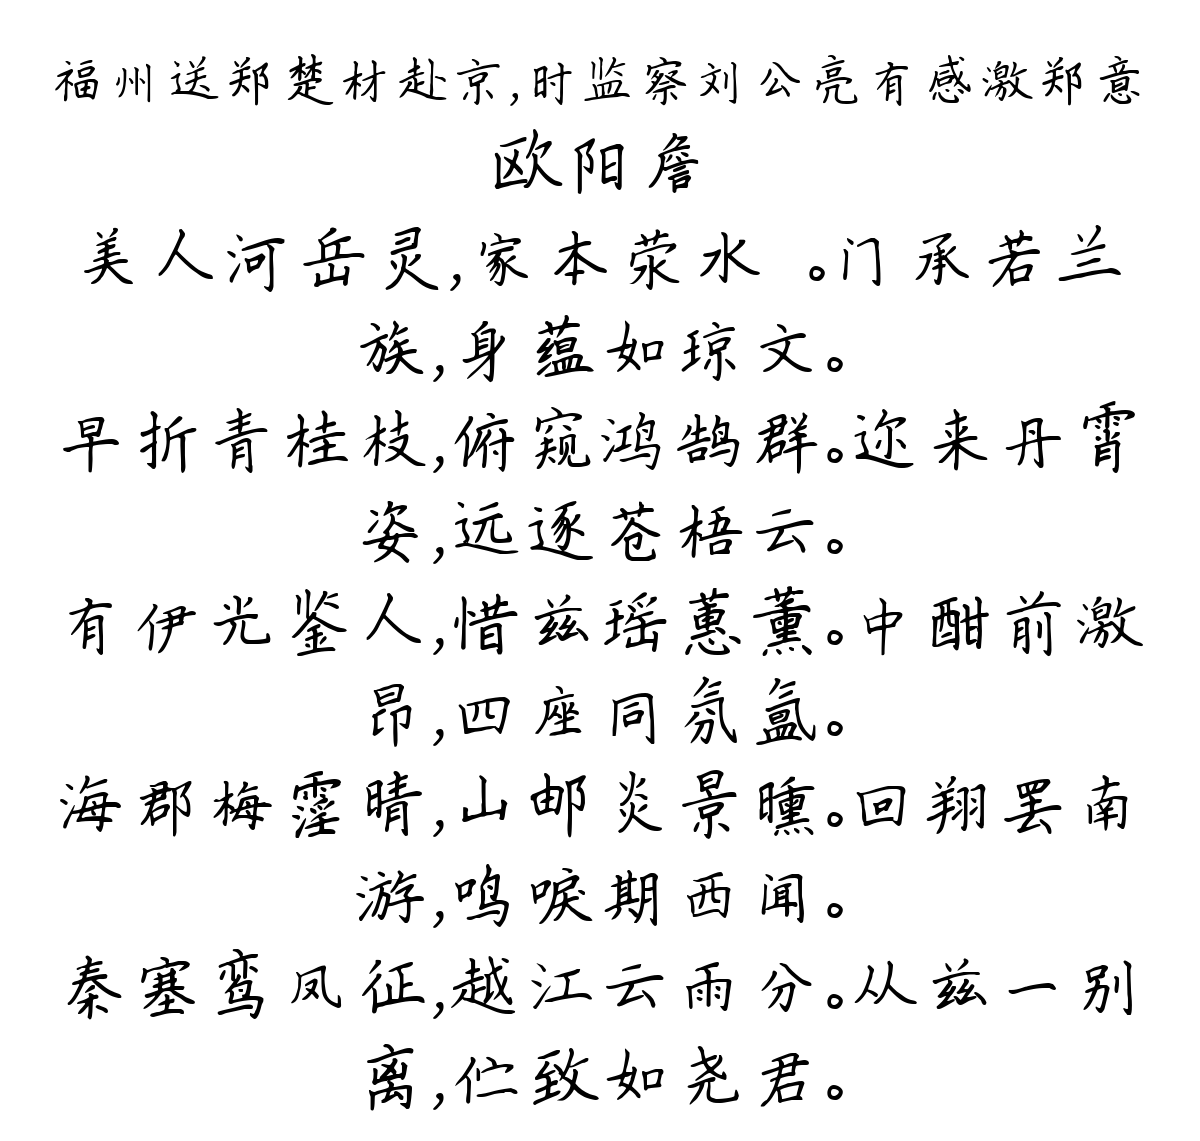 福州送郑楚材赴京,时监察刘公亮有感激郑意
欧阳詹
美人河岳灵,家本荥水 。门承若兰
族,身蕴如琼文。
早折青桂枝,俯窥鸿鹄群。迩来丹霄
姿,远逐苍梧云。
有伊光鉴人,惜兹瑶蕙薰。中酣前激
昂,四座同氛氲。
海郡梅霪晴,山邮炎景曛。回翔罢南
游,鸣唳期西闻。
秦塞鸾凤征,越江云雨分。从兹一别
离,伫致如尧君。